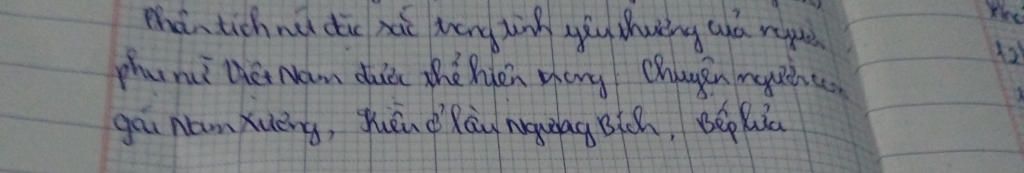 Phân tích nét đặc sắc trong tình yêu thương của người
phụ nữ Việt Nam được thể hiện trong Chuyện người con
gái Nam Xương, Kiều ở lầu Ngưng Bích, Bếp lửa